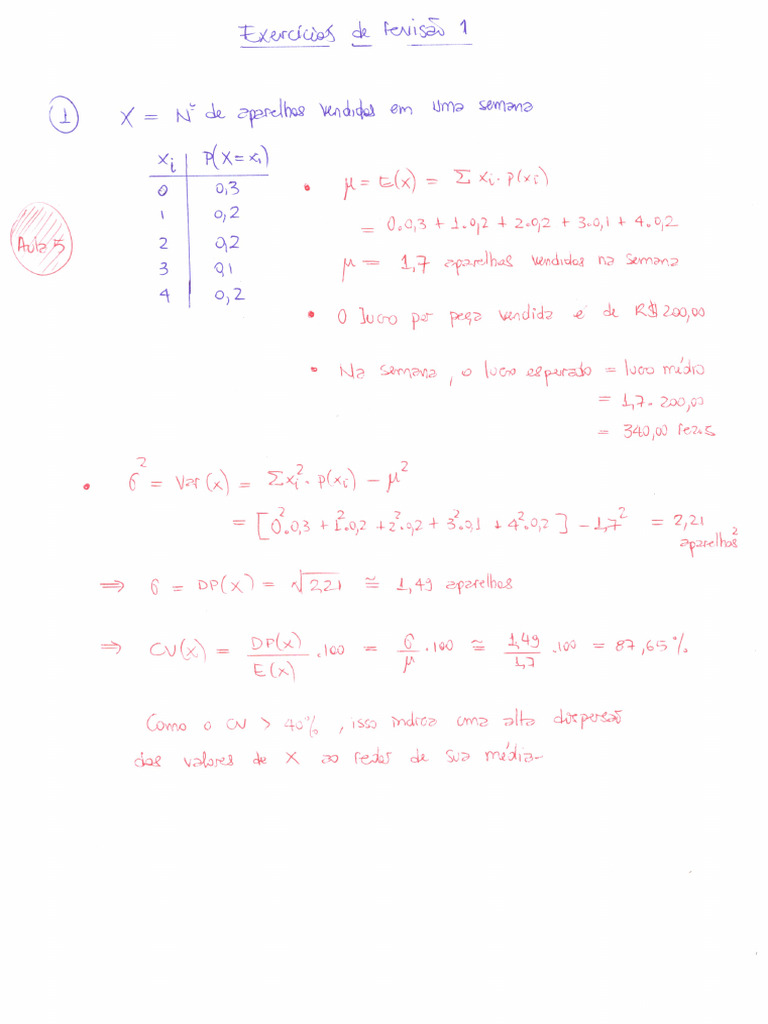 Exercícios de revisão 1
1 X = Nº de aparelhos vendidos em uma semana
xi P(X=xi)
0 0,3
1 0,2
2 0,2
3 0,1
4 0,2
Aula 5
• μ = E(x) = Σ xi · p(xi)
= 0·0,3 + 1·0,2 + 2·0,2 + 3·0,1 + 4·0,2
μ = 1,7 aparelhos vendidos na semana
• O lucro por peça vendida é de R$ 200,00
• Na semana, o lucro esperado = lucro médio
= 1,7 · 200,00
= 340,00 reais
• σ² = Var(x) = Σxi² · p(xi) − μ²
= [0²·0,3 + 1²·0,2 + 2²·0,2 + 3²·0,1 + 4²·0,2] − 1,7² = 2,21
aparelhos²
⇒ σ = DP(X) = √2,21 ≅ 1,49 aparelhos
⇒ CV(X) = DP(X)/E(X) · 100 = σ/μ · 100 ≅ 1,49/1,7 · 100 = 87,65%
Como o CV > 40%, isso indica uma alta dispersão
dos valores de X ao redor de sua média.